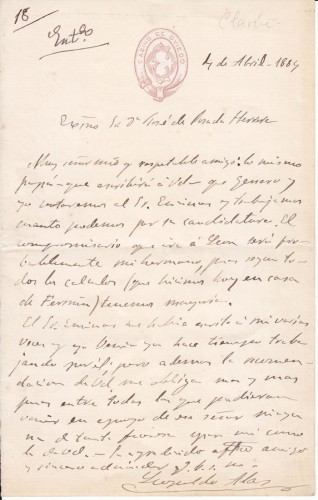 18
Clarín
CASINO DE OVIEDO
4 de Abril - 1884
Excmo Sr Dn José de Posada Herrera
Muy señor mío y respetable amigo: lo mismo
papá que escribirá a Vd. que Genaro y
yo votaremos al Sr. y trabajamos
cuanto podemos por su candidatura. El
compromisario que irá a Leon será pro-
bablemente mi hermano, pues segun to-
dos los calculos (que hicimos hoy en casa
de Fermín) tenemos mayoría.
El Sr. me había escrito a mi varias
veces y yo venía ya hace tiempo traba-
jando por él: pero ademas la recomen-
dacion de Vd me obliga mas y mas
pues entre todas las que pudieran
venir en apoyo de ese señor ningu-
na de tanta fuerza para mi como
la de Vd. - Le agradecido affmo amigo
y sincero admirador q. b. s. m.
Leopoldo Alas